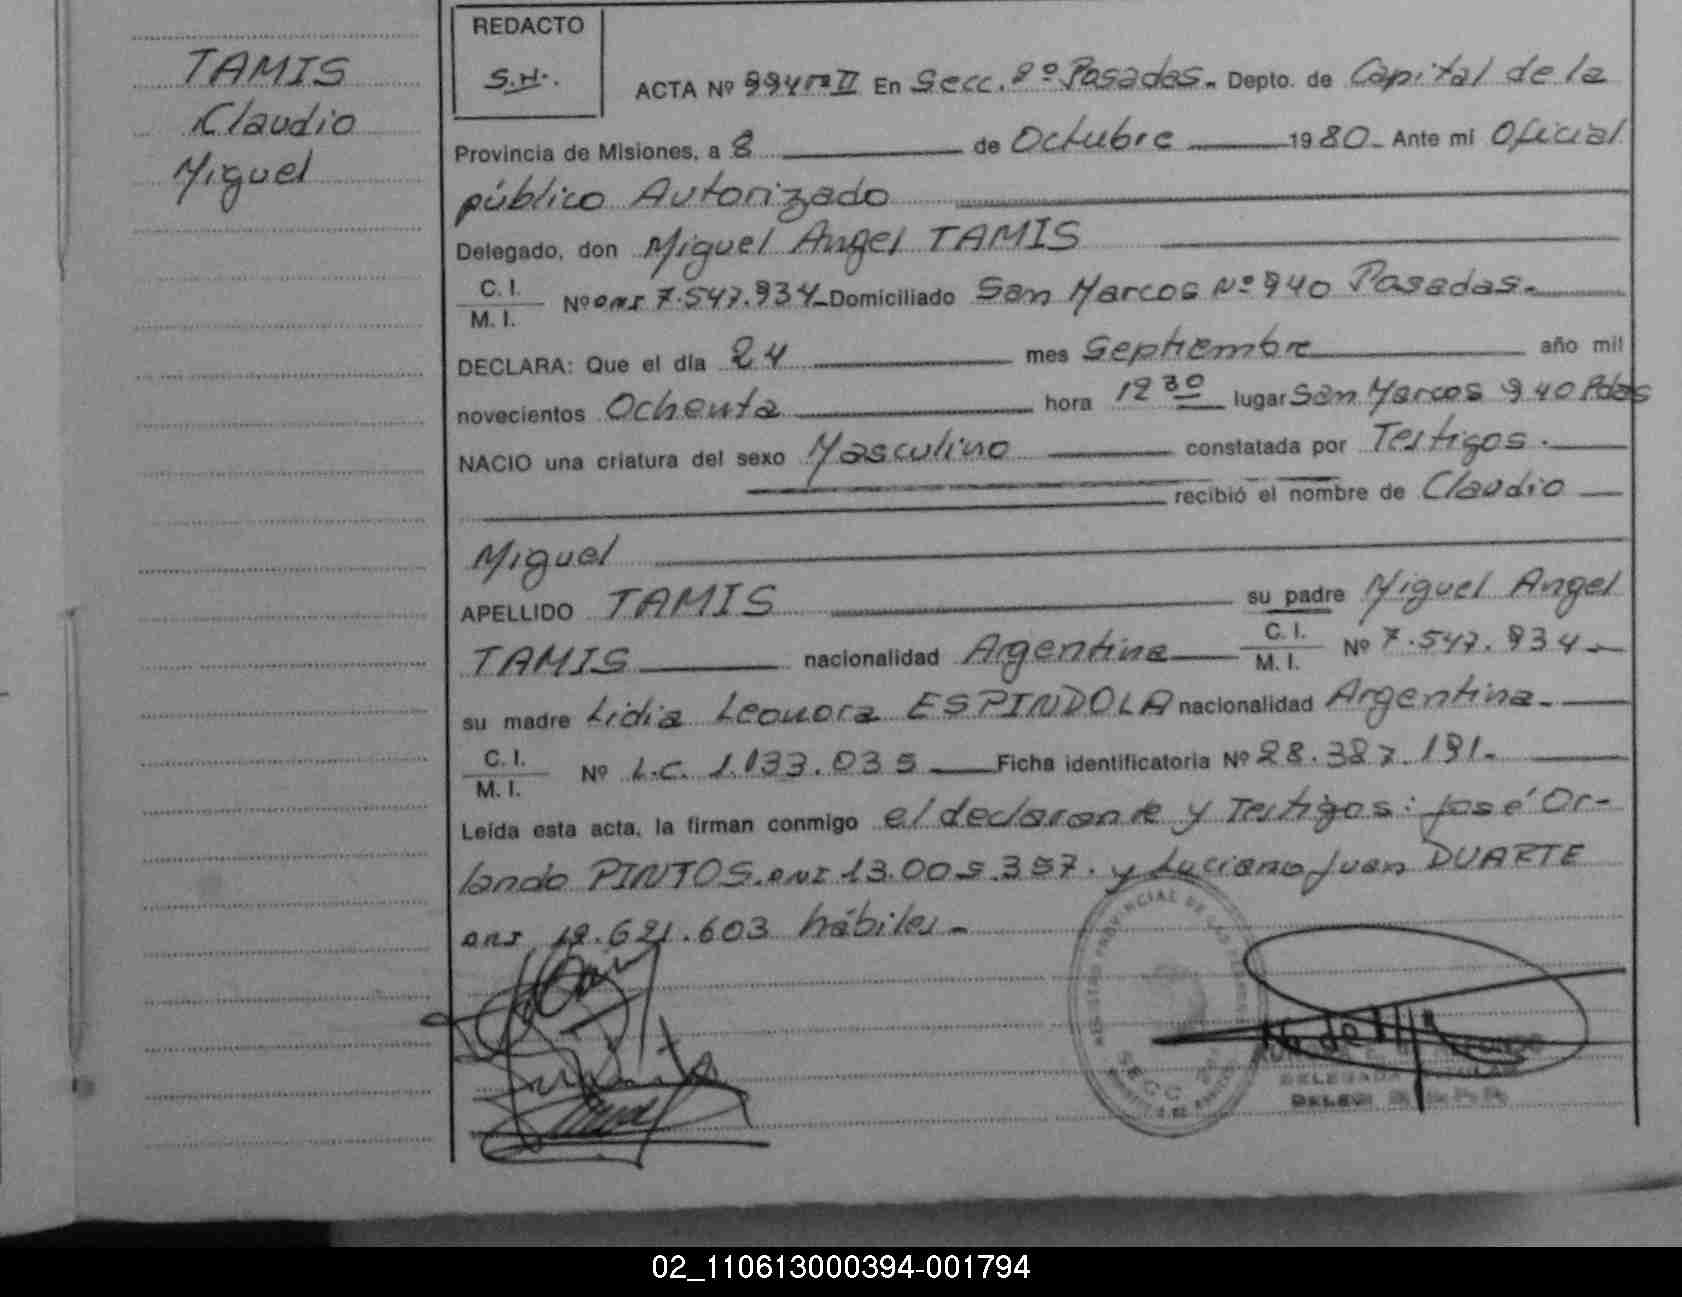 TAMIS
Claudio
Miguel
REDACTO
S.H.
ACTA Nº 994 Tº II En Secc. 2º Posadas. Depto. de Capital de la
Provincia de Misiones, a 8 de Octubre 1980. Ante mi Oficial
público Autorizado
Delegado, don Miguel Angel TAMIS
C. I.
M. I. Nº DNI 7.547.934 Domiciliado San Marcos Nº 940 Posadas.
DECLARA: Que el día 24 mes Septiembre año mil
novecientos Ochenta hora 12 30 lugar San Marcos 940 Pdas
NACIO una criatura del sexo Masculino constatada por Testigos.
recibió el nombre de Claudio
Miguel
APELLIDO TAMIS su padre Miguel Angel
TAMIS nacionalidad Argentina C. I. M. I. Nº 7.547.934
su madre Lidia Leonora ESPINDOLA nacionalidad Argentina.
C. I.
M. I. Nº L.C. 1.133.035 Ficha identificatoria Nº 28.387.191.
Leída esta acta, la firman conmigo el declarante y Testigos: José Or-
lando PINTOS. DNI 13.005.357. y Luciano Juan DUARTE
DNI 12.621.603 hábiles.
REGISTRO PROVINCIAL DE LAS
SECC.
DELEGADA TITULAR
02_110613000394-001794